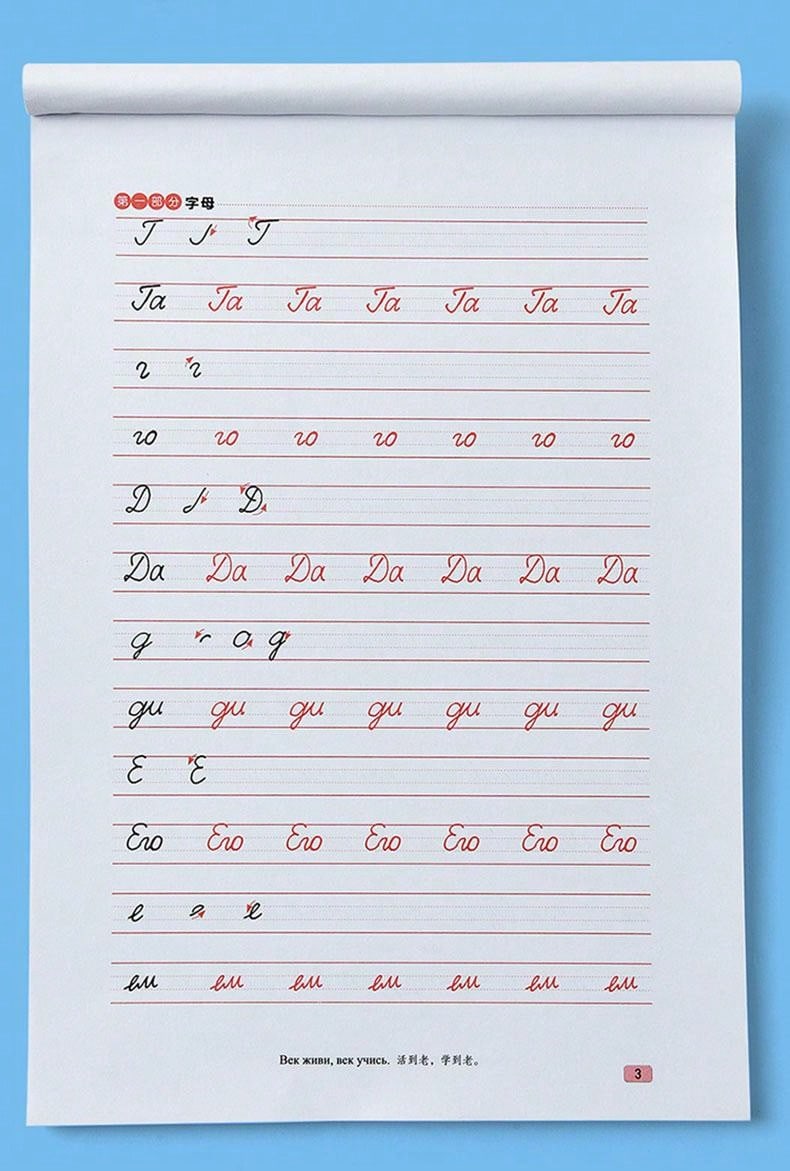 第一部分 字母
Г Г
Га Га Га Га Га Га Га
г г
го го го го го го го
Д Д
Да Да Да Да Да Да Да
д а д
ди ди ди ди ди ди ди
Е Е
Его Его Его Его Его Его Его
е е
ем ем ем ем ем ем ем
Век живи, век учись. 活到老，学到老。
3